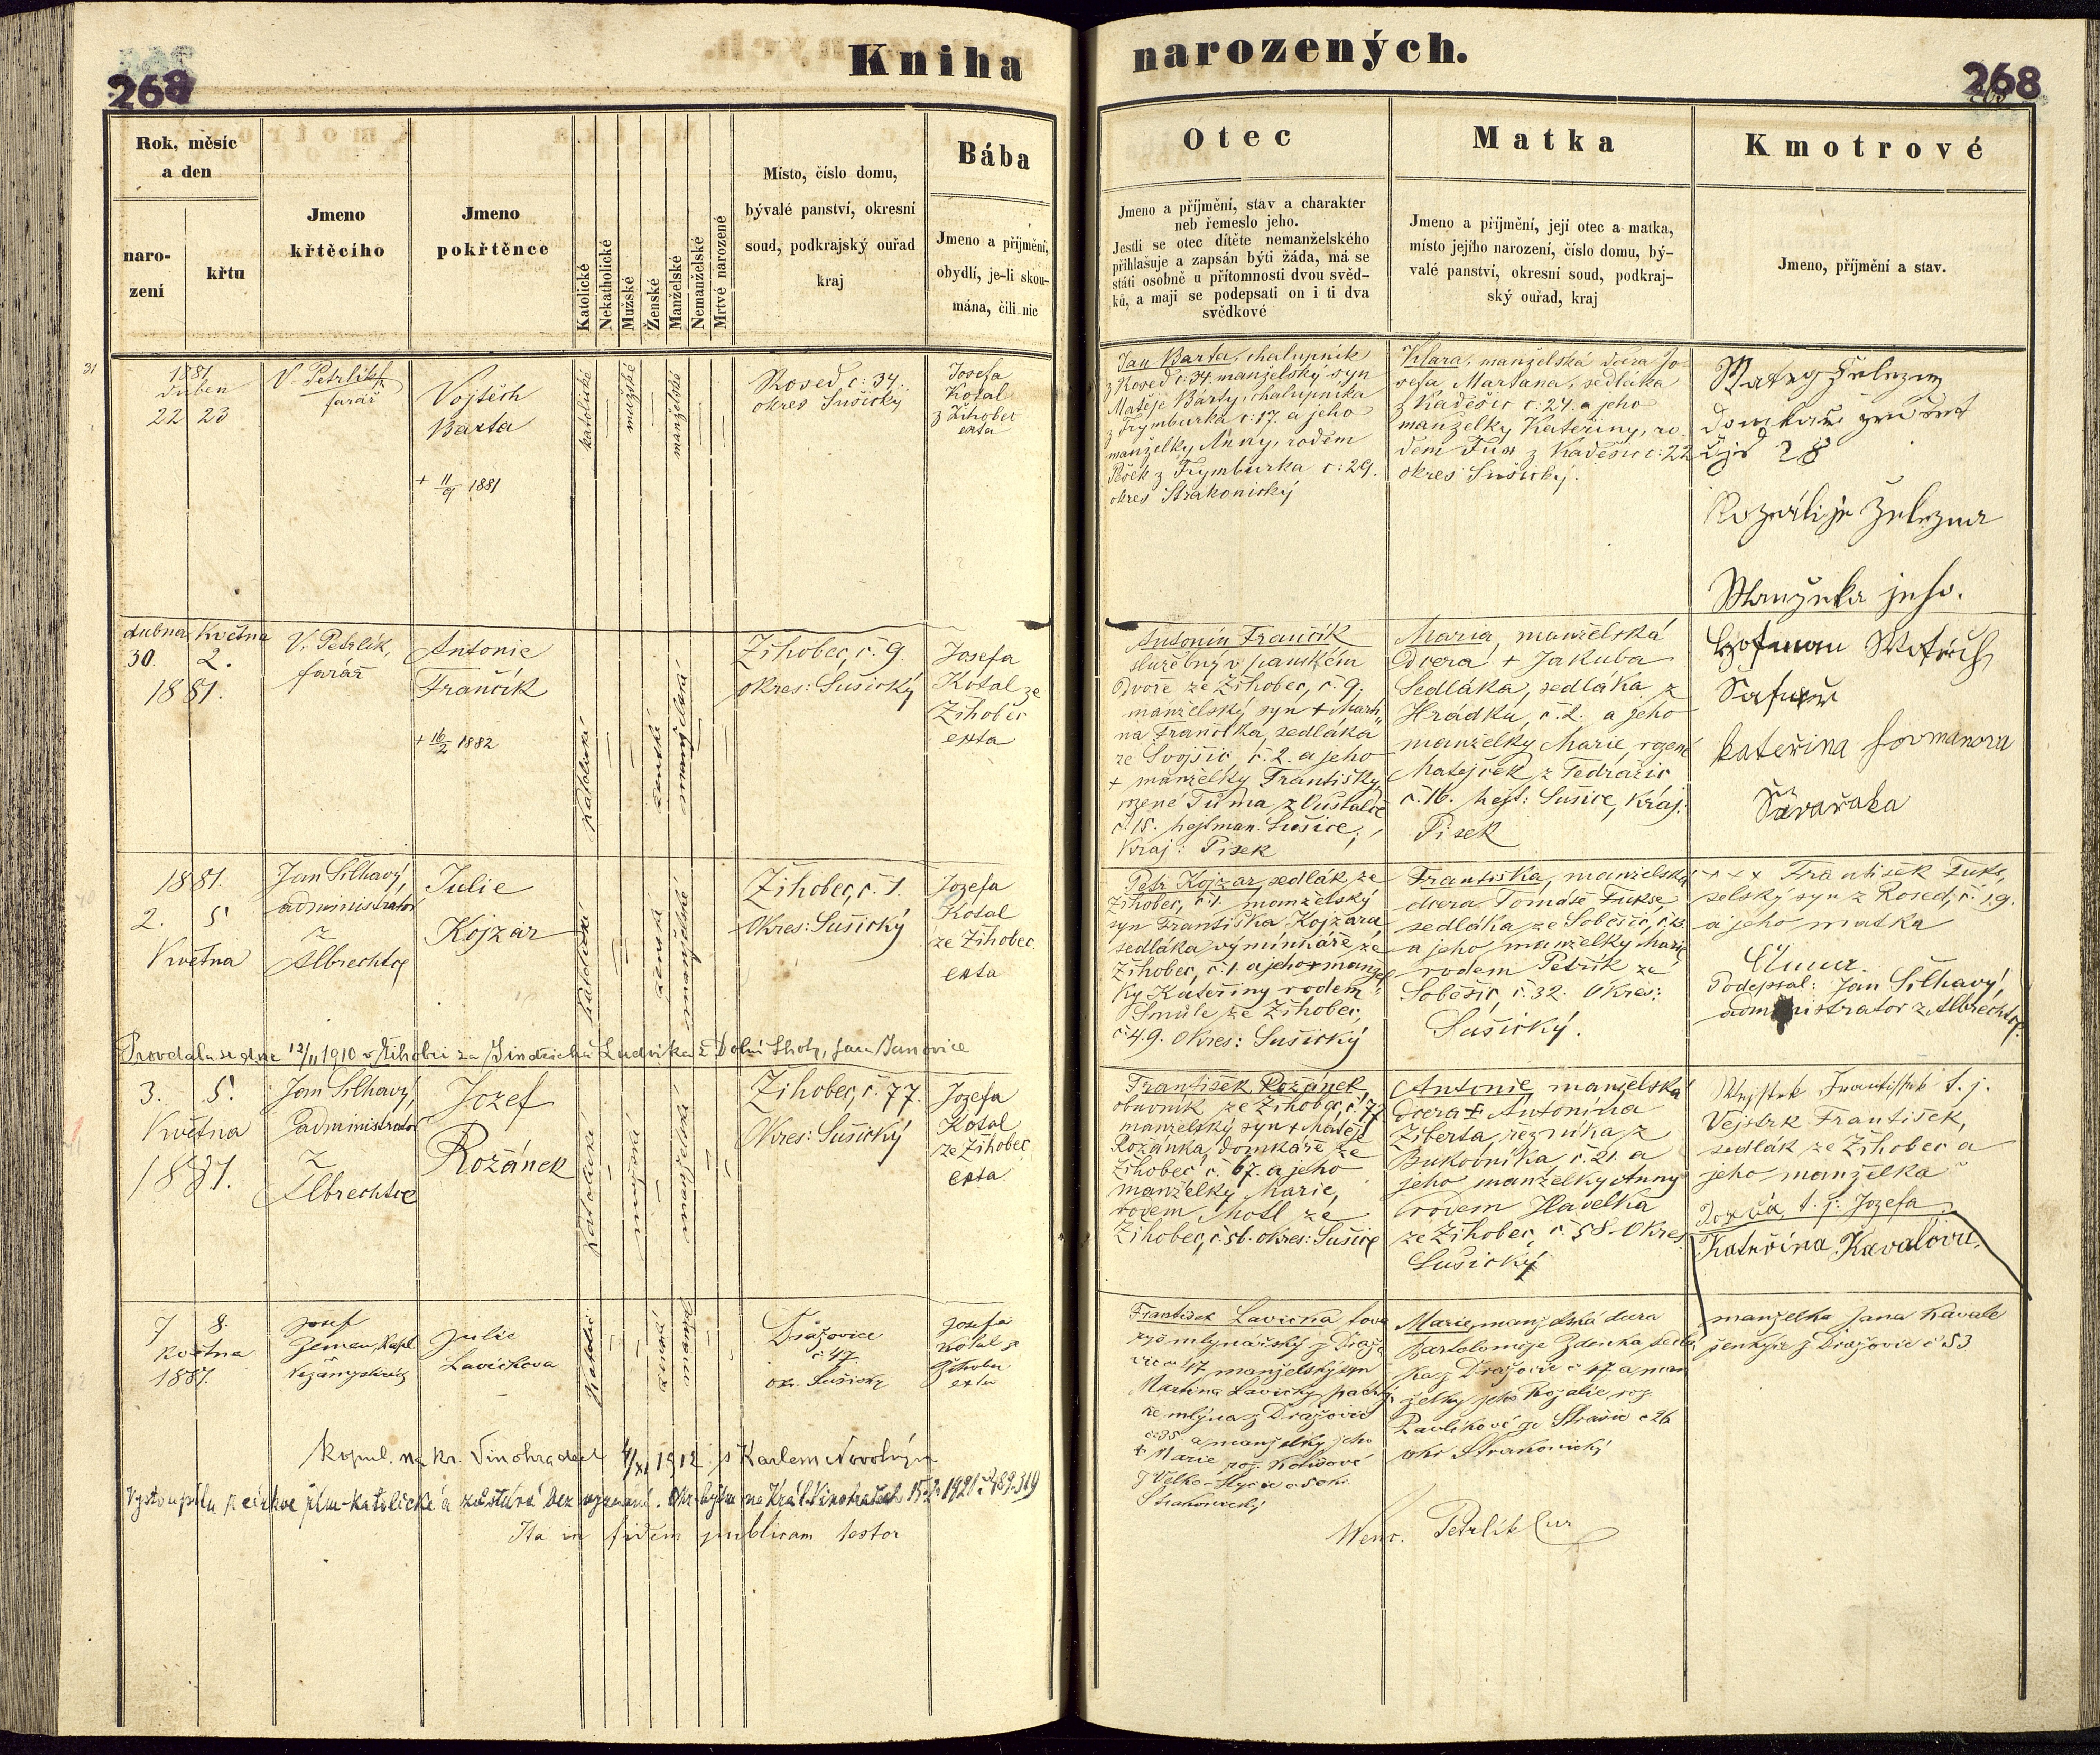 268
Kniha
narozených.
268
Rok, měsíc
a den
naro-
zení
křtu
Jmeno
křtěcího
Jmeno
pokřtěnce
Katolické
Nekatholické
Mužské
Ženské
Manželské
Nemanželské
Mrtvé narozené
Místo, číslo domu,
bývalé panství, okresní
soud, podkrajský ouřad
kraj
Bába
Jmeno a příjmění,
obydlí, je-li skou-
mána, čili nic
Otec
Jmeno a příjmění, stav a charakter
neb řemeslo jeho.
Jestli se otec dítěte nemanželského
přihlašuje a zapsán býti žáda, má se
státi osobně u přítomnosti dvou svěd-
ků, a mají se podepsati on i ti dva
svědkové
Matka
Jmeno a příjmění, její otec a matka,
místo jejího narození, číslo domu, bý-
valé panství, okresní soud, podkraj-
ský ouřad, kraj
Kmotrové
Jmeno, příjmění a stav.
31
1881
duben
22 23
V. Petrlík
farář
Vojtěch
Barta
+ 11/9 1881
katolické
mužské
manželské
Rosed č: 34.
okres Sušický
Josefa
Kotal
z Žihobec
exta
Jan Barta, chalupník
z Rosed č: 34. manželský syn
Matěje Bárty, chalupníka
z Frymburka č: 17. a jeho
manželky Anny, rodem
Pešek z Frymburka č: 29.
okres Strakonický
Klara, manželská dcera Jo-
sefa Martana, sedláka
z Kadešic č: 24. a jeho
manželky Kateřiny, ro-
dem Fux z Kadešic č: 22
okres Sušický.
Matěg Železny
28
Rozálije Železna
Manželka jeho.
dubna Května
30. 2.
1881.
V. Petrlík,
farář
Antonie
Frančík
+ 16/2 1882
Katolické
ženské
manželské
Žihobec, č. 9.
okres: Sušický
Josefa
Kotal ze
Žihobec
exta
Antonín Frančík
služebný v panském
dvoře ze Žihobec, č. 9.
manželský syn + Marti-
na Frančíka, sedláka
ze Svojšic č. 2. a jeho
+ manželky Františky,
rozené Tůma z
č. 15. hejtman. Sušice,
Kraj: Písek
Maria, manželská
dcera + Jakuba
Sedláka, sedláka z
Hrádku, č. 2. a jeho
manželky Marie, rozené
Matějček z Tedražic
č. 16. hejt: Sušice, Kraj:
Písek
Hofman
Šafář
Kateřina Hofmanova
Šafařka
1881.
2. 5.
Května
Jan Šilhavý
administrátor
z
Albrechtce
Julie
Kojzar
Katolické
ženské
manželské
Žihobec, č. 1.
Okres: Sušický
Jozefa
Kotal
ze Žihobec
exta
Petr Kojzar, sedlák ze
Žihobec, č. 1. manželský
syn Františka Kojzara
sedláka výminkáře ze
Žihobec, č. 1. a jeho + manžel-
ky Kateřiny rodem
Smůle ze Žihobec,
č. 49. Okres: Sušický
Františka, manželská
dcera Tomáše Fukse,
sedláka ze Soběšic, č. 13.
a jeho manželky Marie
rodem Petřík ze
Soběšic, č. 32. Okres:
Sušický.
+++ František Fuks,
selský syn z Rosed, č. 19.
a jeho matka
Anna.
Podepsal: Jan Šilhavý,
administrator z Albrechtce.
Provdala se dne 12/II 1910 v Žihobci za Jindřicha Ludvíka z Dolní Lhoty, fara Janovice
3. 5.
Května
1881.
Jan Šilhavý,
administrátor
z
Albrechtce
Jozef
Rožánek
Katolické
mužské
manželské
Žihobec, č. 77.
Okres: Sušický
Jozefa
Kotal
ze Žihobec
exta
František Rožánek
obuvník ze Žihobec, č. 77
manželský syn + Matěje
Rožánka, domkáře ze
Žihobec č. 67. a jeho
manželky Marie,
rodem Motl ze
Žihobec, č. 56. okres: Sušice
Antonie, manželská
dcera + Antonína
Ziberta, řezníka z
Bukovníka, č. 21. a
jeho manželky Anny
rodem Havelka
ze Žihobec, č. 58. Okres
Sušický
František t. j.
Vejstrk František,
sedlák ze Žihobec a
jeho manželka
t. j. Jozefa
Kateřina Kavalová,
7 8.
května
1881.
Josef
Zeman, kapl.
Julie
Lavičkova
Katolic.
ženské
manžel
Dražovice
č 47
okr. Sušický
Josefa
Kotal z
Žihobec
exta
František Lavička tova-
ryš mlynářský z Dražo-
vic č 47 manželský syn
Martina Lavičky, pachtý-
ře mlýna z Dražovic
č. 35 a manželky jeho
+ Marie roz. Kotišové
z Velko-Hydčic č 5 okr.
Strakonický
Marie, manželská dcera
Bartoloměje Zdenka sedlá-
ka z Dražovic č 47 a man-
želky jeho Rozalie roz.
Pavlíkové ze Strašic č 26
okr Strakonický
manželka Jana Kavale
šenkýře z Dražovic č 53
Kopul. na Kr. Vinohradech 4/XI 1912 s Karlem Novotným
Vystoupila z církve řím-katolické a zůstává bez vyznání. Okr. hejtm. na Král. Vinohradech 15./2. 1921 č. 489.319
Ita in fidem publicam testor
Wenc. Petrlík Cur